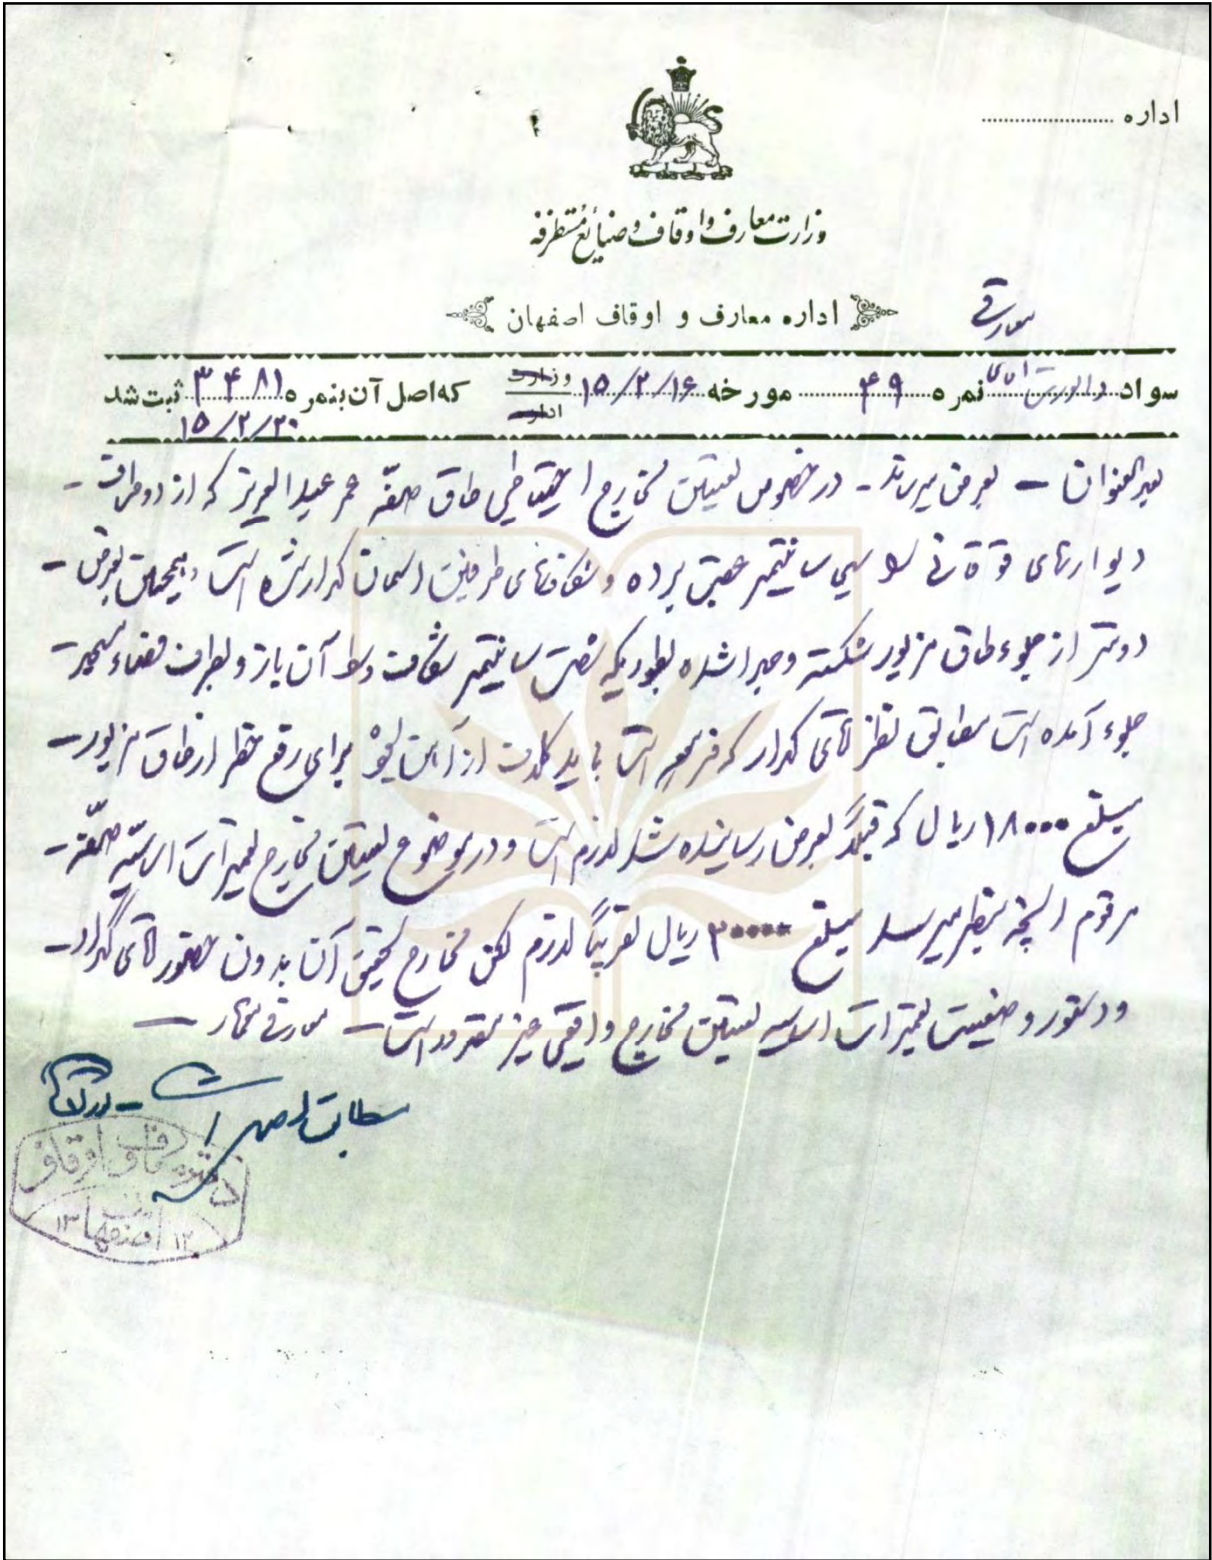 اداره
وزارت معارف و اوقاف و صنایع مستظرفه
اداره معارف و اوقاف اصفهان
معارفی
سواد راپورت آقای نمره ۴۹ مورخه ۱۵/۲/۱۶ وزارت اداره که اصل آن بنمره ۳۴۸۱ ثبت شد
۱۵/۲/۲۰
بعدالعنوان – بعرض میرساند – در خصوص تعیین مخارج احتیاطی طاق صفه عمر عبدالعزیز که از دو طرف –
دیوارهای فوقانی سی سانتیمتر عقب برده و شکافهای طرفین گدار شده است و همچنین بعرض –
دو متر از جلوء طاق مزبور شکسته و جدا شده بطوریکه شصت سانتیمتر شکافت وسط آن باز و بطرف فضاء مسجد –
جلوء آمده است مطابق نظر آقای گدار که باید از آهن برای رفع خطر از طاق مزبور –
مبلغ ۱۸۰۰۰ ریال که قبلاً بعرض رسانیده شد لازم است و در موضوع تعیین مخارج تعمیرات اساسی صفه –
مرقوم البته بنظر میرسد مبلغ ۳۰۰۰۰ ریال تقریباً لازم لکن مخارج تحقیقی آن بدون حضور آقای گدار –
و دستور وضعیت تعمیرات اساسیه تعیین مخارج واقعی غیر مقدور است – معارفی معمار –
مطابق اصل است –
معارف و اوقاف
اصفهان
۱۳ ۱۲